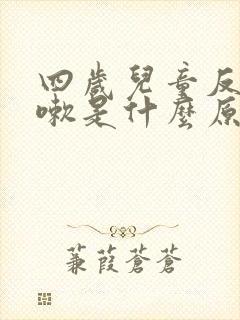 四歲兒童反
嗽是什麼原
蒹葭蒼蒼